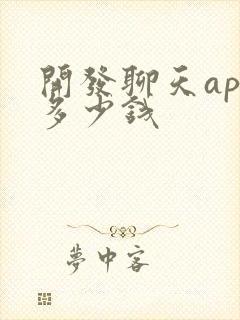 開發聊天ap
多少錢
夢中客